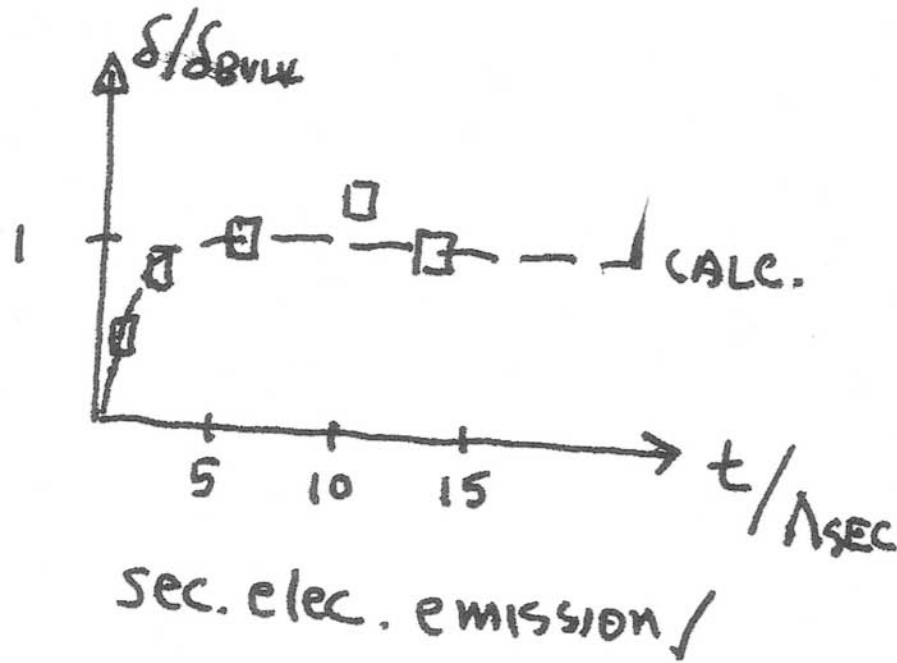 δ/δBULK
1
CALC.
5 10 15
t/ΛSEC
sec. elec. emission